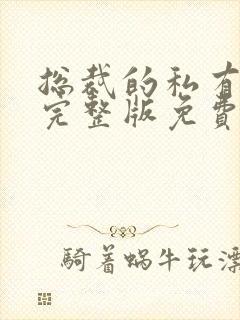 总裁的私有
完整版免费
骑着蜗牛玩漂